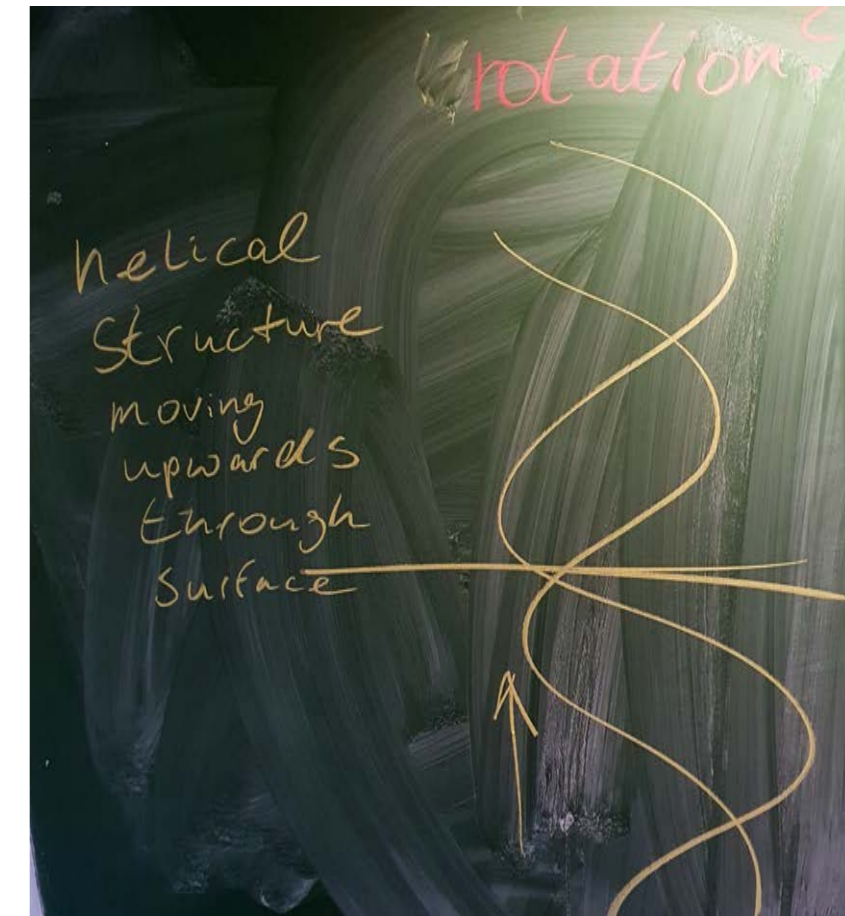 rotation?
helical
structure
moving
upwards
through
surface